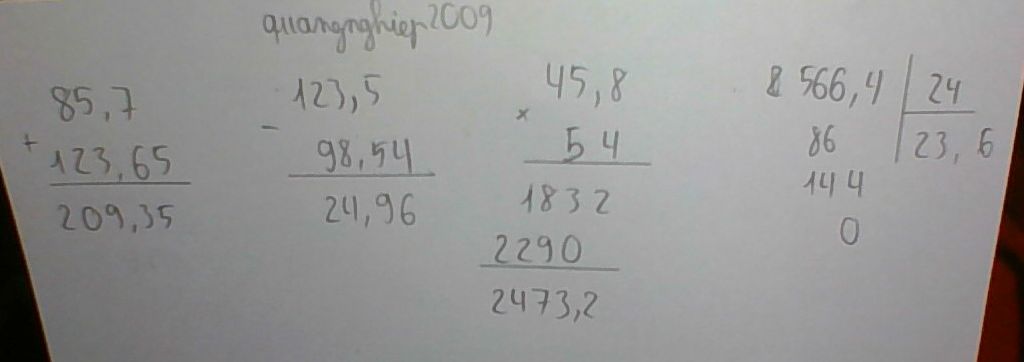 quangnghiep2009
85,7
+
123,65
209,35
123,5
-
98,54
24,96
45,8
×
54
1832
2290
2473,2
566,4 24
86 23,6
144
0